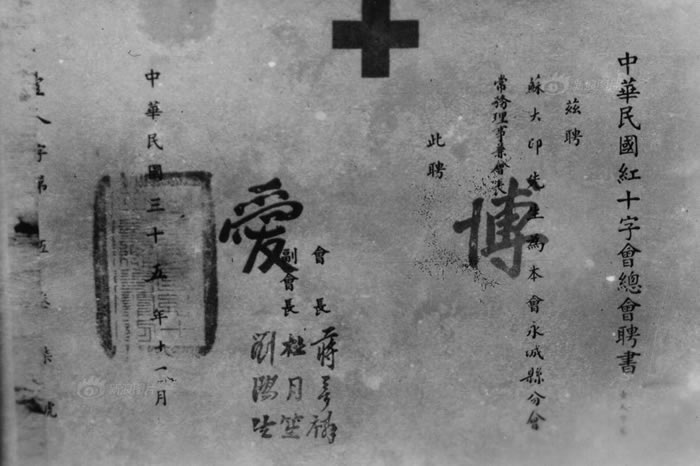 中華民國紅十字會總會聘書
茲聘
蘇大印先生為本會永城縣分會
常務理事兼會長
此聘
博
愛
會長 蔣夢麟
副會長 杜月笙
劉鴻生
中華民國三十五年十一月
字第
號